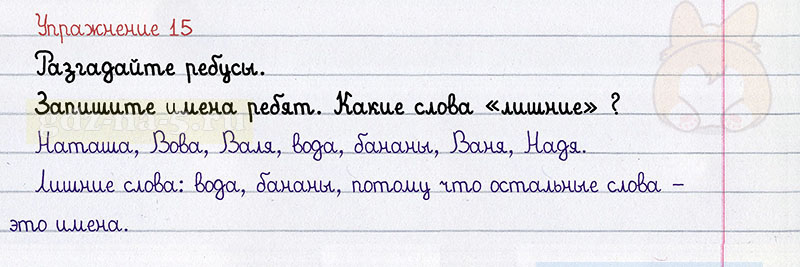 Упражнение 15
Разгадайте ребусы.
Запишите имена ребят. Какие слова «лишние» ?
Наташа, Вова, Валя, вода, бананы, Ваня, Надя.
Лишние слова: вода, бананы, потому что остальные слова –
это имена.